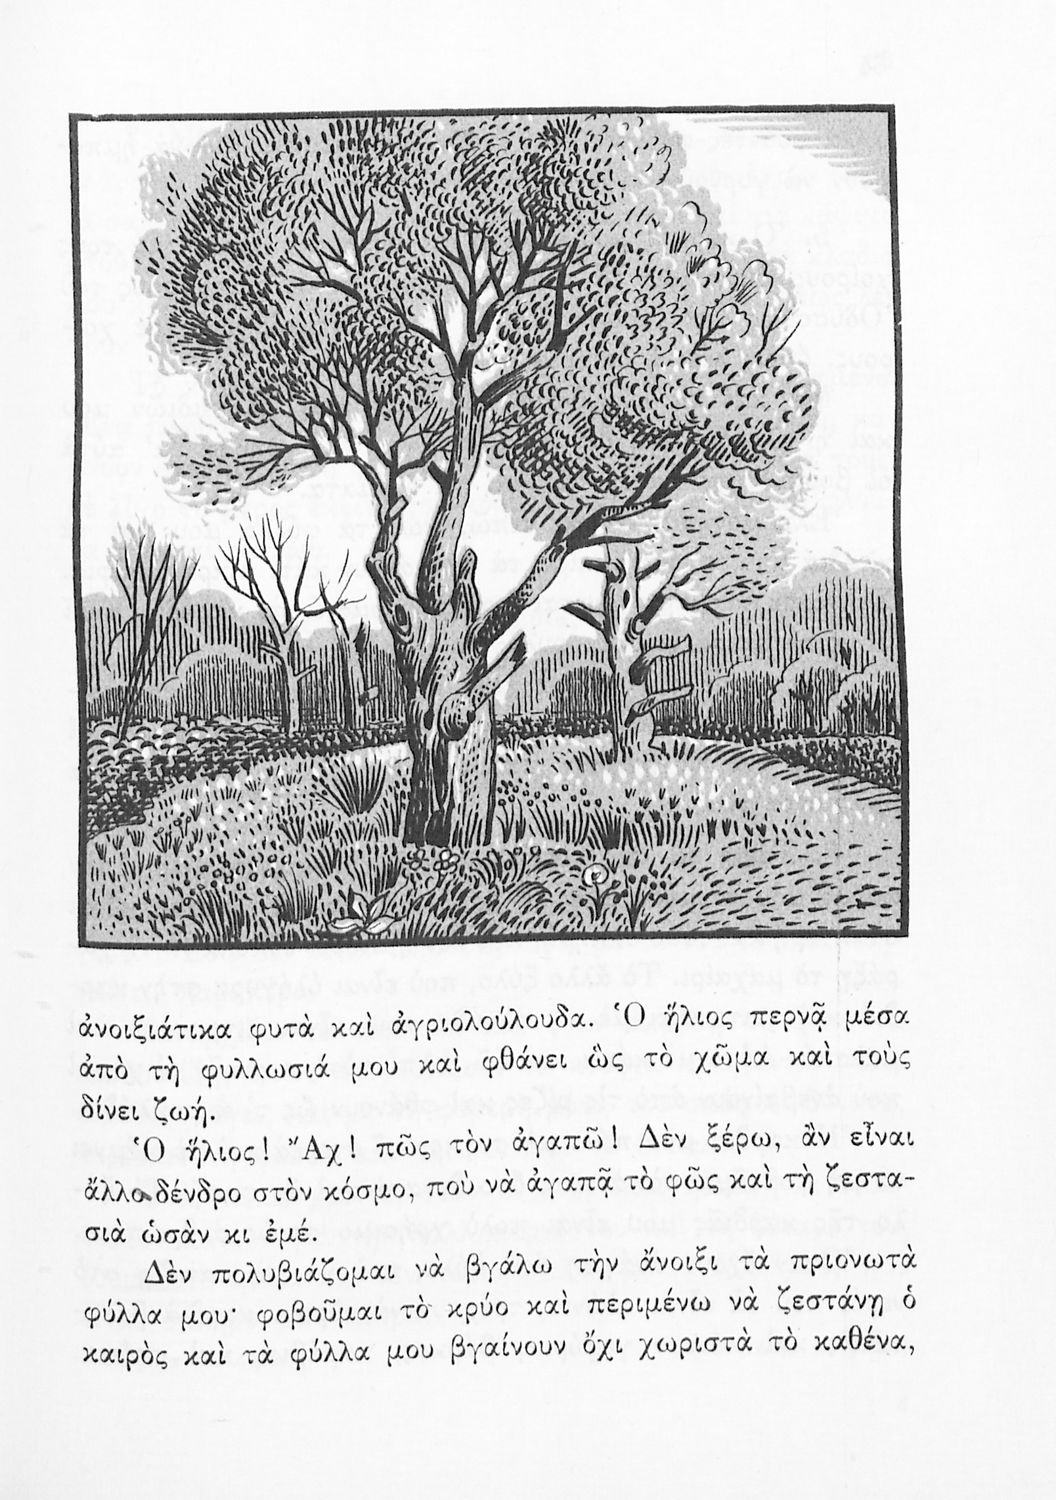 ἀνοιξιάτικα φυτὰ καὶ ἀγριολούλουδα. Ὁ ἥλιος περνᾷ μέσα
ἀπὸ τὴ φυλλωσιά μου καὶ φθάνει ὣς τὸ χῶμα καὶ τοὺς
δίνει ζωή.
Ὁ ἥλιος! Ἄχ! πῶς τὸν ἀγαπῶ! Δὲν ξέρω, ἂν εἶναι
ἄλλο δένδρο στὸν κόσμο, ποὺ νὰ ἀγαπᾷ τὸ φῶς καὶ τὴ ζεστα-
σιὰ ὡσὰν κι ἐμέ.
Δὲν πολυβιάζομαι νὰ βγάλω τὴν ἄνοιξι τὰ πριονωτὰ
φύλλα μου· φοβοῦμαι τὸ κρύο καὶ περιμένω νὰ ζεστάνῃ ὁ
καιρὸς καὶ τὰ φύλλα μου βγαίνουν ὄχι χωριστὰ τὸ καθένα,